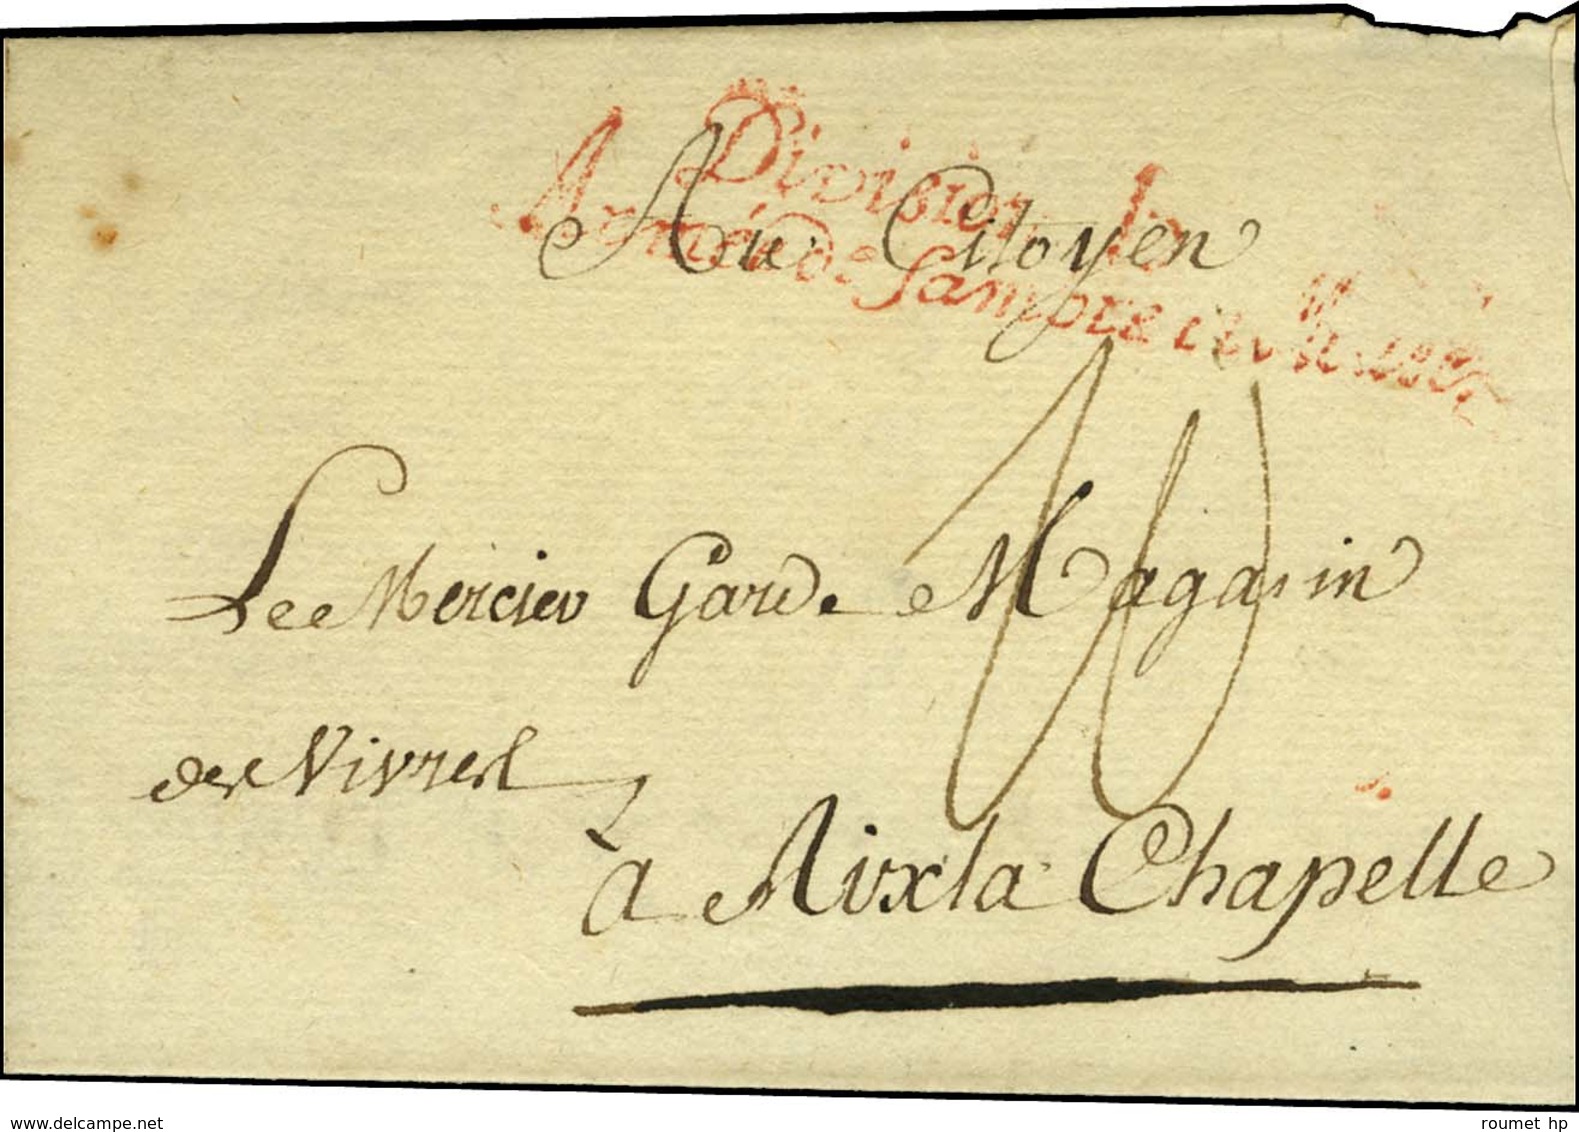 Division
Armée de Sambre et Meuse
Au Citoyen
Le Mercier Garde Magasin
des Vivres
à Aix la Chapelle
www.delcampe.net
roumet hp